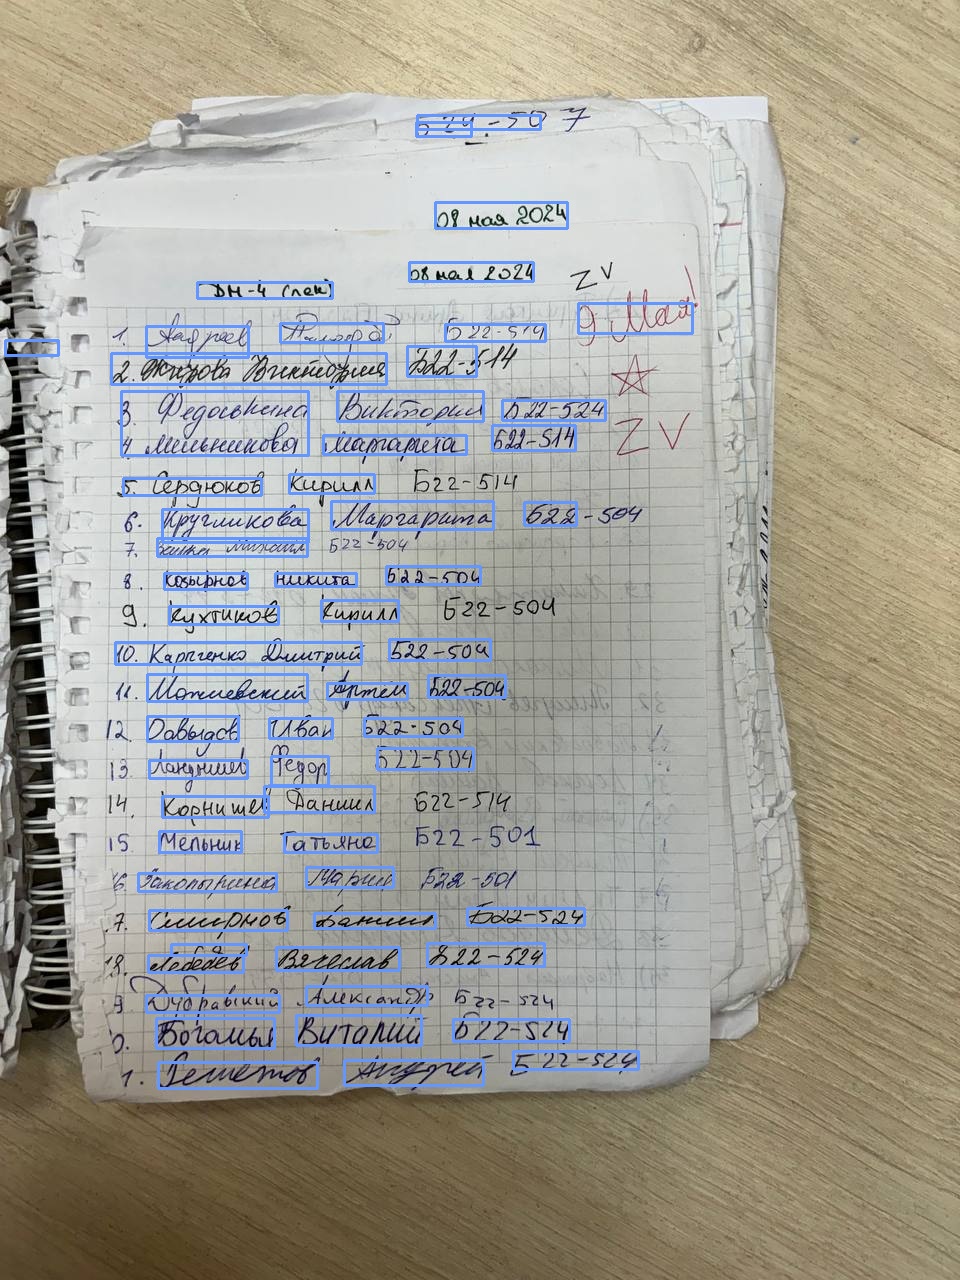 Б24-507
08 мая 2024
08 мая 2024
ZV
ДМ-4 (лек)
9 Мая!
1. Андреев Б22-514
2. Жирова Виктория Б22-514
3. Федоськина Виктория Б22-524
ZV
4. Мельникова Маргарита Б22-514
5. Сердюков Кирилл Б22-514
6. Кругликова Маргарита Б22-504
7. Зайка Михаил Б22-504
8. Козырнов Никита Б22-504
9. Кухтиков Кирилл Б22-504
10. Карпченко Дмитрий Б22-504
11. Можиевский Артём Б22-504
12. Давыдов Иван Б22-504
13. Ландышев Федор Б22-504
14. Корнишев Даниил Б22-514
15. Мельник Татьяна Б22-501
16. Закопырина Мария Б22-501
7. Смирнов Даниил Б22-524
18. Лебедев Вячеслав Б22-524
9 Дубравский Александр Б22-524
0. Богомья Виталий Б22-524
1. Решетов Андрей Б22-524